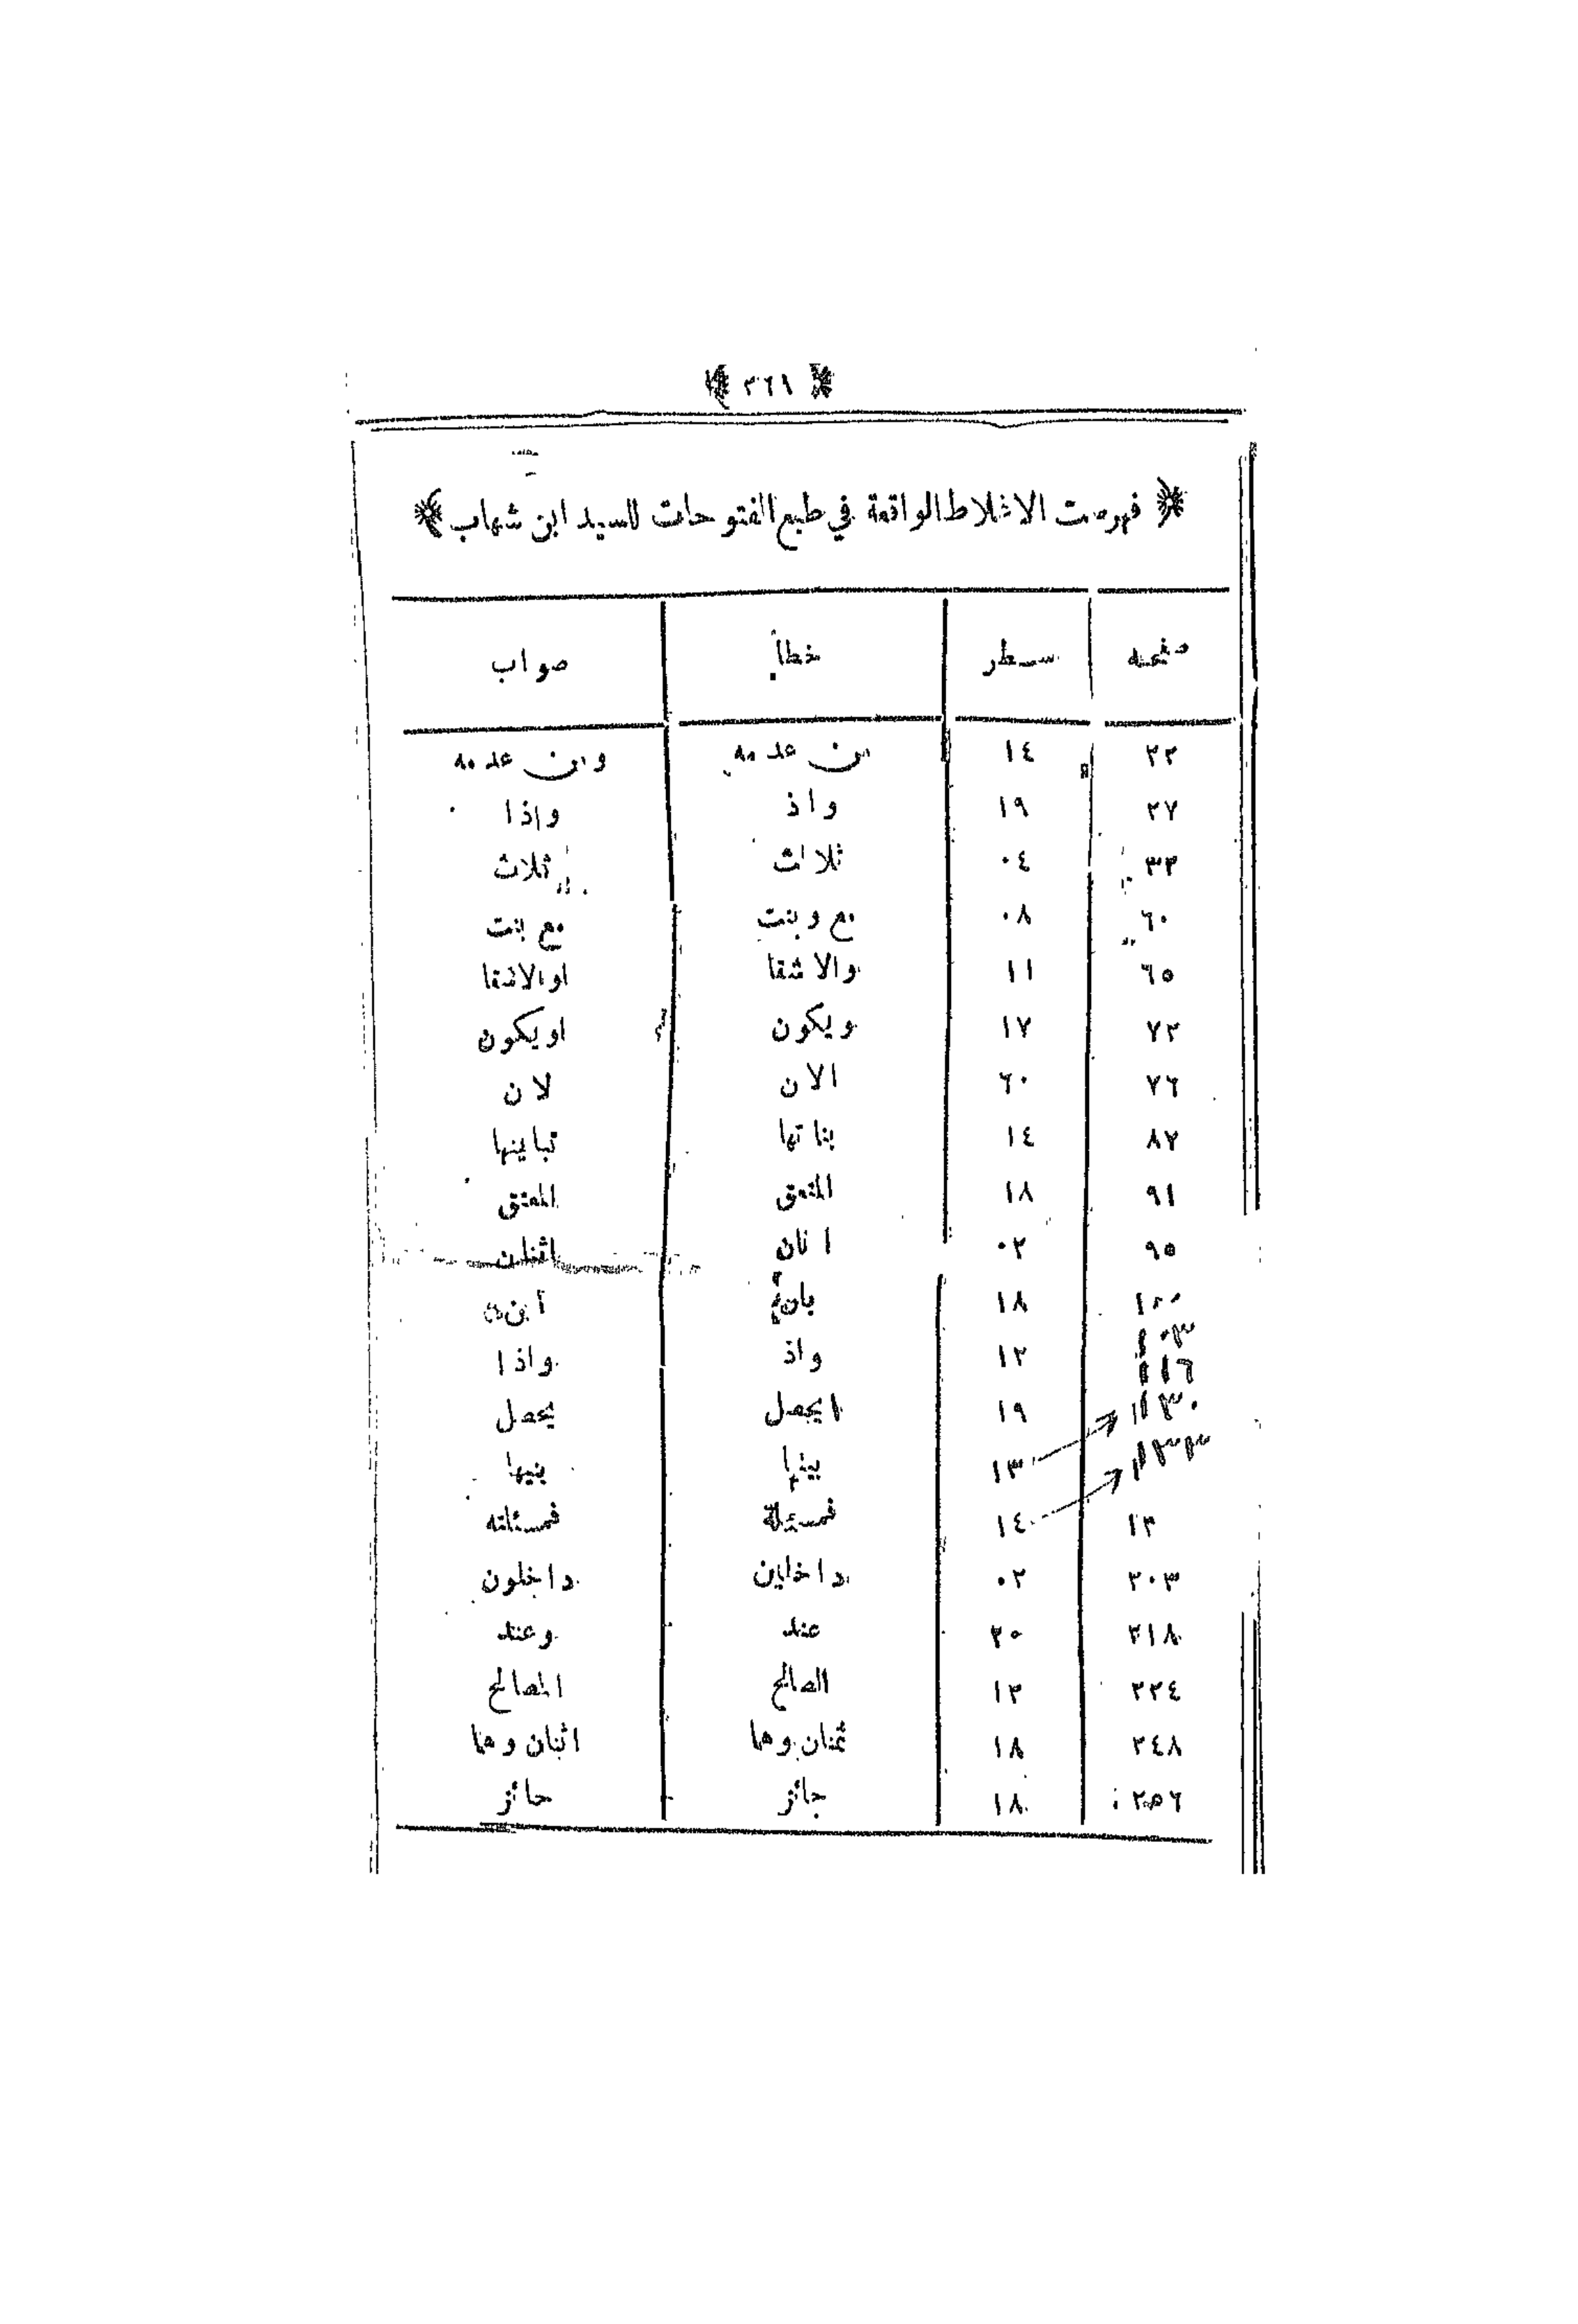 ٣٦١
فهرست الاغلاط الواقعة في طبع الفتوحات للسيد ابن شهاب
صفحه سطر خطأ صواب
٢٢ ١٤ من عدمه ومن عدمه
٢٧ ١٩ واذ واذا
٣٣ ٠٤ ثلاث ثلاث
٦٠ ٠٨ مع وبنت مع بنت
٦٥ ١١ والاشقا اوالاشقا
٧٢ ١٧ ويكون اويكون
٧٦ ٦٠ الان لان
٨٧ ١٤ بناتها تباينها
٩١ ١٨ المتعق المعتق
٩٥ ٠٢ اثنان
١٠٠ ١٨
١٠٣
١١٦ ١٢ واذ واذا
١٣٠ ١٩ ايحصل يحصل
١٣٣ ١٣ بينها بنيها
١٣ ١٤ فمسئلة فمسئلته
٢٠٣ ٠٢ داخلين داخلون
٢١٨ ٢٠ عند وعند
٢٢٤ ١٢ الصالح المصالح
٢٤٨ ١٨ ثمنان وهما اثنان وهما
٢٥٦ ١٨ جائز حائز